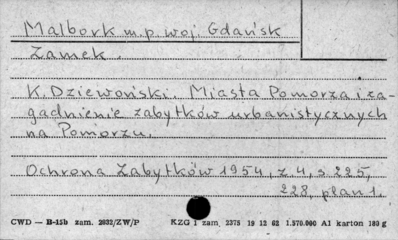 Malbork m.p. woj. Gdańsk
Zamek.
K. Dziewoński. Miasta Pomorza i za-
gadnienie zabytków urbanistycznych
na Pomorzu.
Ochrona Zabytków 1954, z 4, s 225,
228, plan 1.
CWD — B-15b zam. 2032/ZW/P KZG 1 zam. 2375 19 12 62 1.570.000 A1 karton 180 g